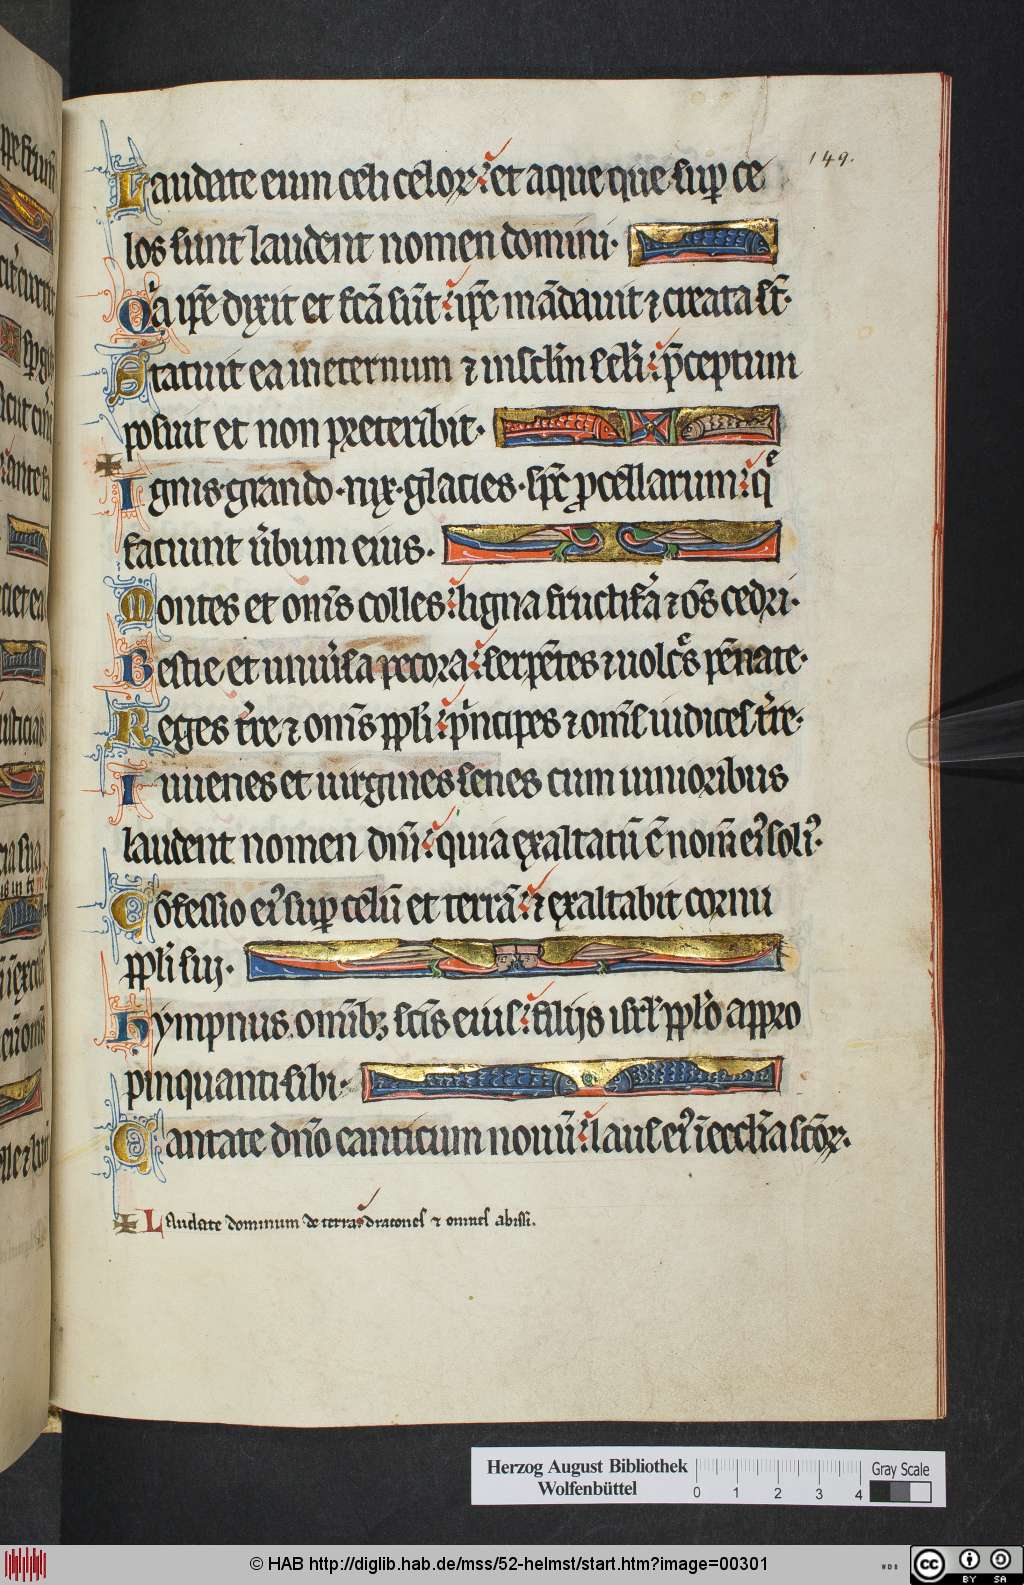 149.
Laudate eum celi celoꝝ: et aque que sup ce
los sunt laudent nomen domini.
Q̾a ip̄e dixit et fc̄a sūt: ip̄e mādauit ⁊ creata st̄.
Statuit ea in eternum ⁊ in sc̄lm̄ sc̄li: p̄ceptum
posuit et non preteribit.
Ignis. grando. nix. glacies. sp̄c ꝓcellarum: q̄
faciunt u̾bum eius.
Montes et om̄s colles: ligna fructifa̾ ⁊ o̅s cedri.
Bestie et uniu̾sa pecora: serpētes ⁊ uolcͤs pēnate.
Reges t̾re ⁊ om̄s ppl̄i: p̾ncipes ⁊ om̄s iudices t̾re.
Iuuenes et uirgines senes cum iunioribus
laudent nomen dn̄i: quia exaltatū ē nom̄ ei᾽ soli᾽.
Cōfessio ei᾽ suꝑ celū et terrā: ⁊ exaltabit cornu
ppl̄i sui.
Hympnus. omībꝫ sc̄is eius: filiis isrl̄ ppl̄o appro
pinquanti sibi.
Cantate dn̄o canticum nouū: laus ei᾽ ī eccl̄ia sc̄oꝝ.
Laudate dominum de terra: dracones ⁊ omnes abissi.
Herzog August Bibliothek
Wolfenbüttel
0 1 2 3 4
Gray Scale
© HAB http://diglib.hab.de/mss/52-helmst/start.htm?image=00301
WDB
cc BY SA